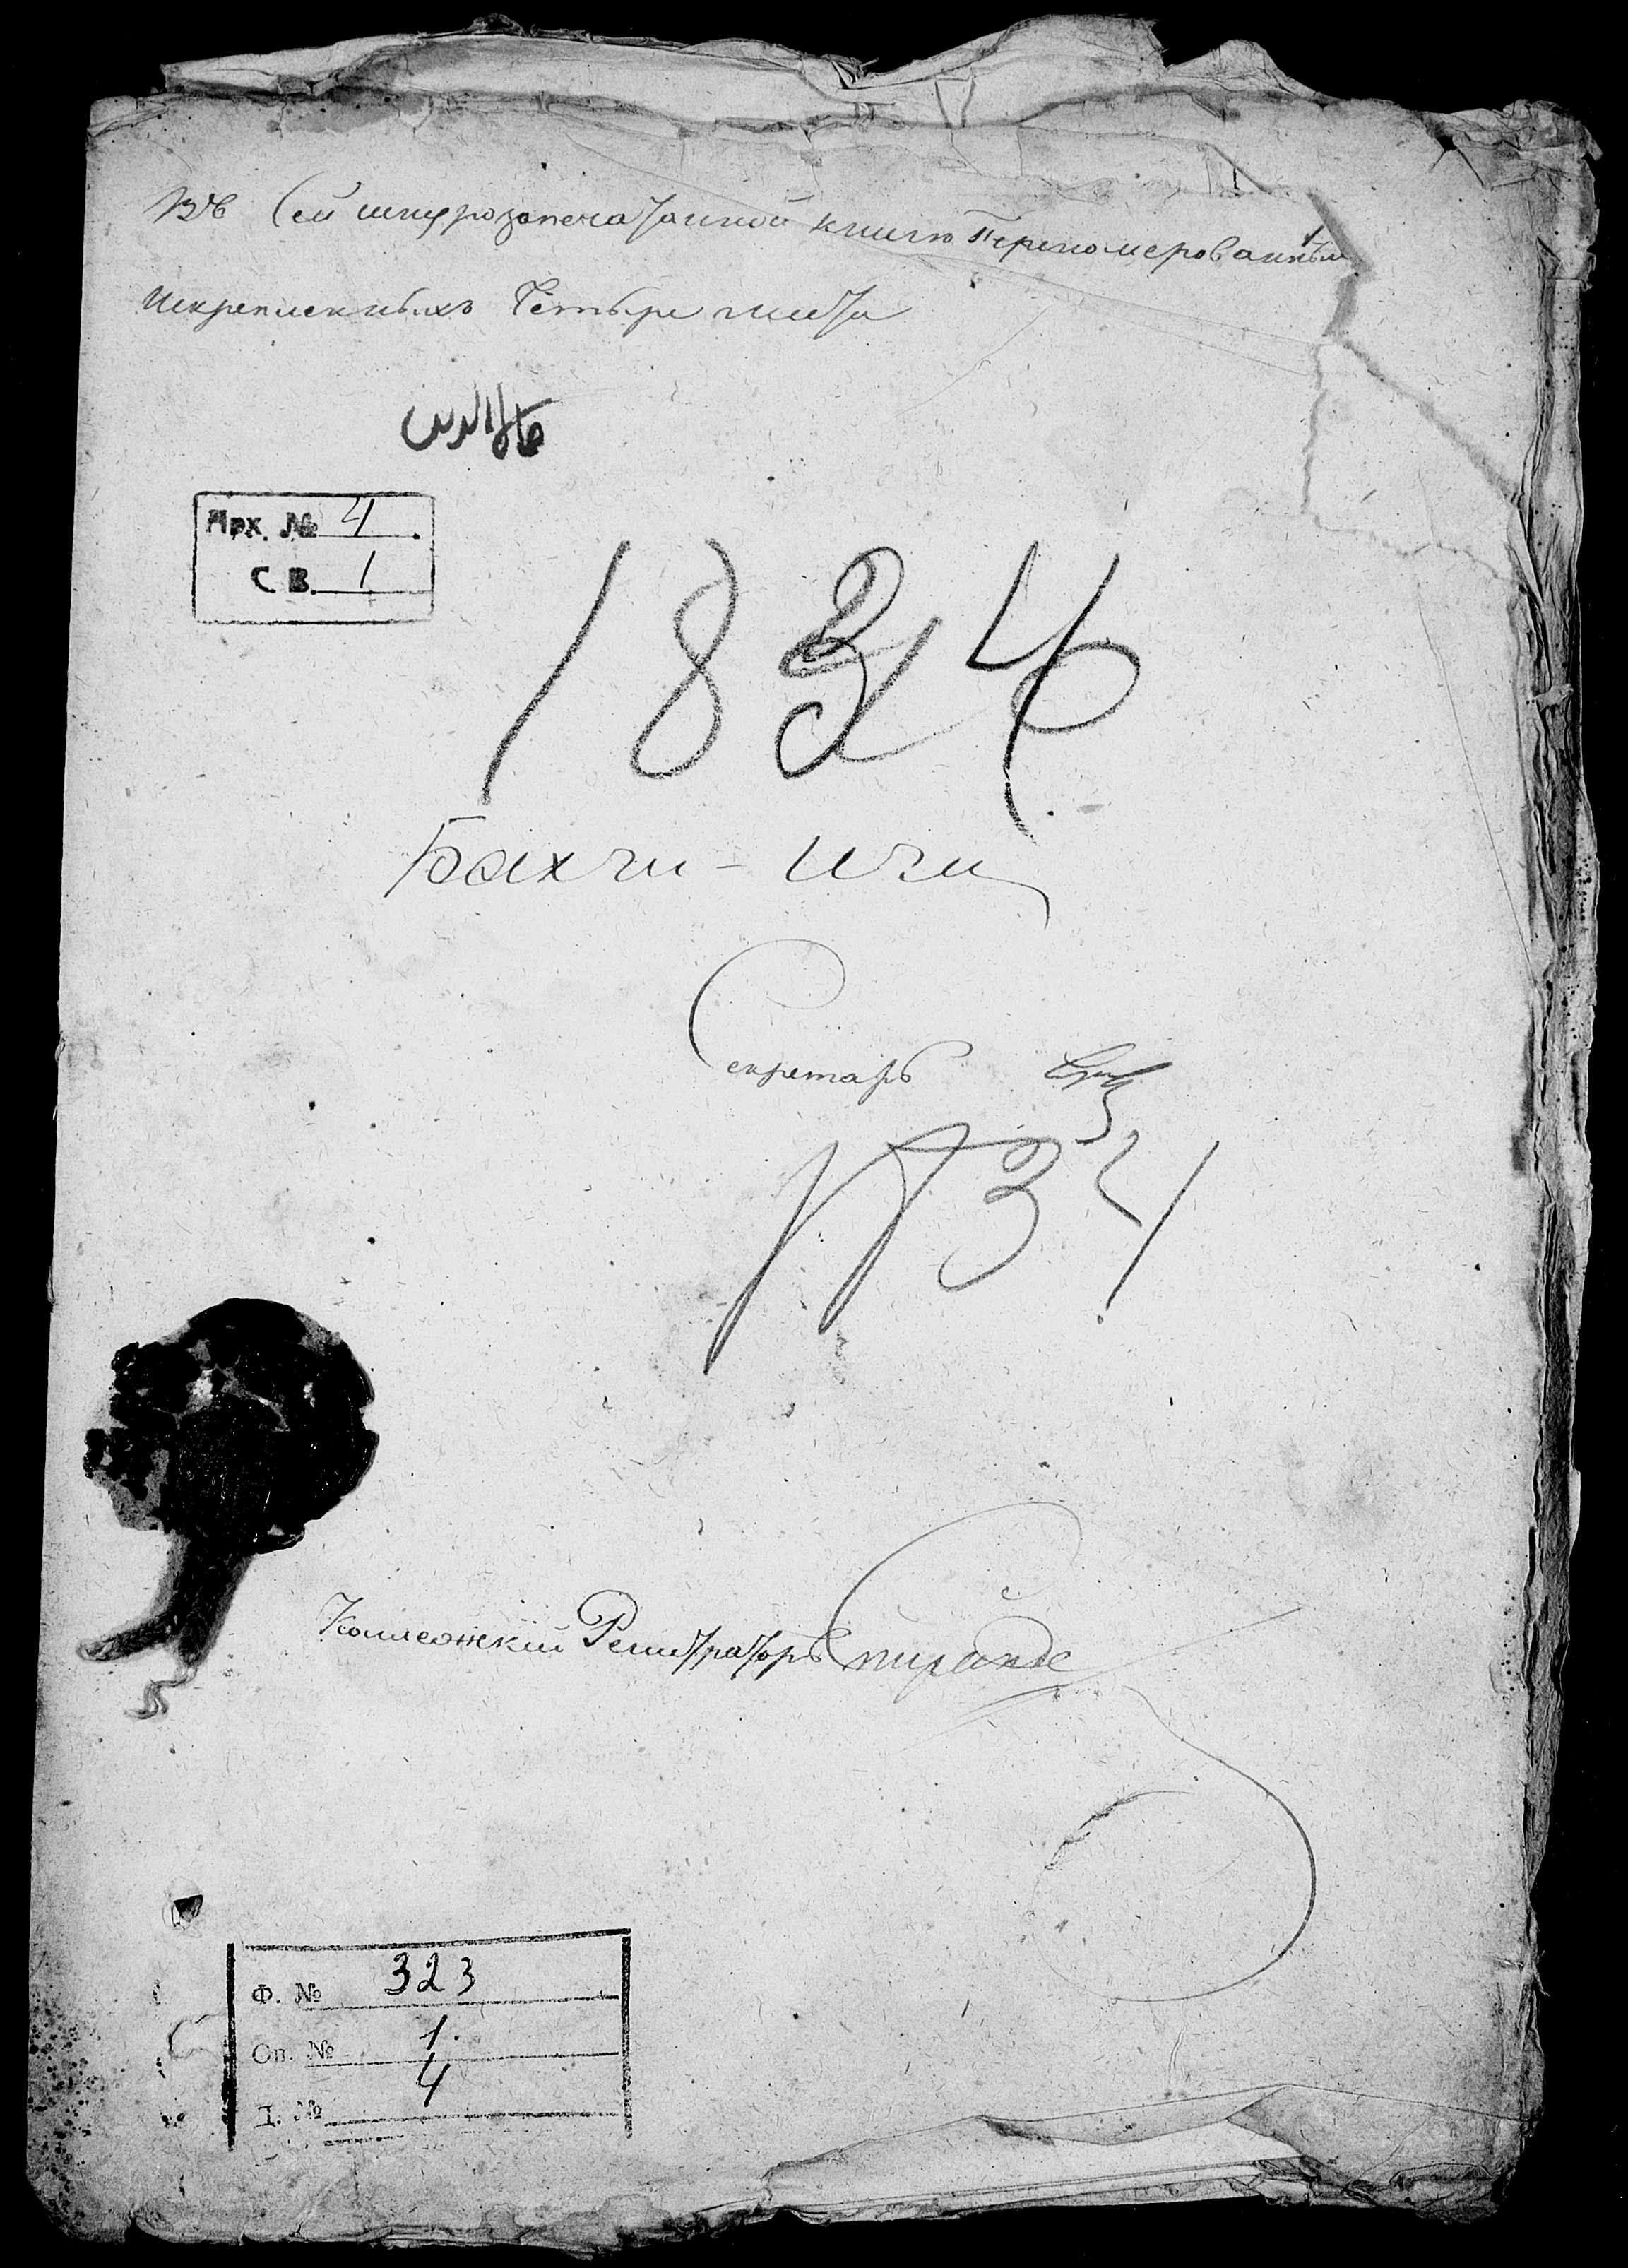 Въ Сей шнурозапечатанной книге Переномерованныхъ
Искрепленныхъ Четыре листа
Арх. № 4.
С В. 1
1834
Бахчи-
Секретарь
1834
Колежский Регистраторъ
Ф. № 323
Оп. № 1.
№ 4